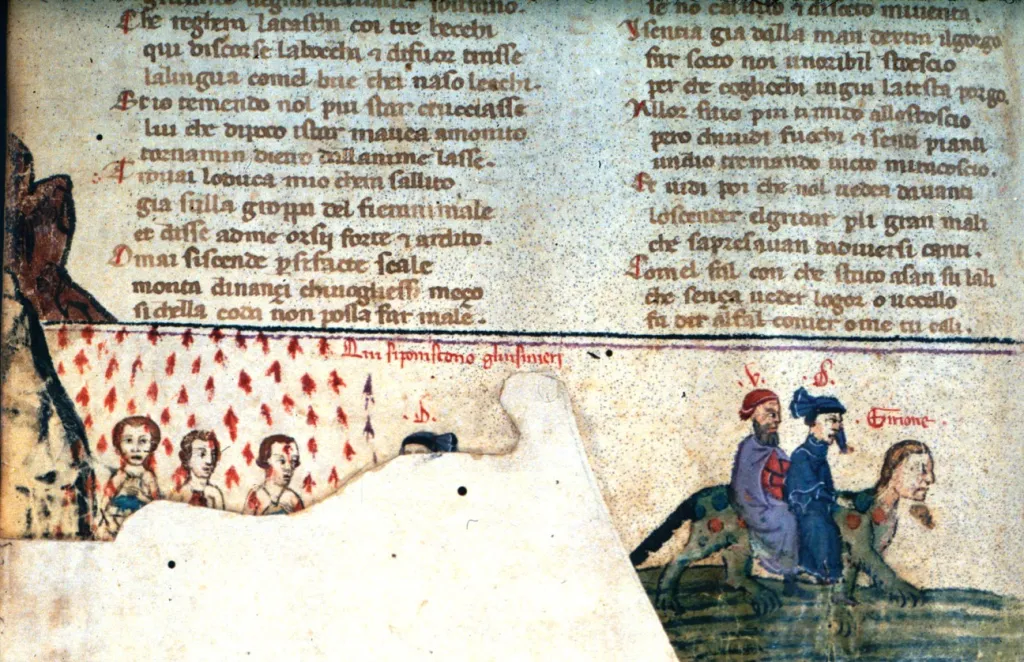 Che reghera latascha coi tre becchi
qui distorse labocca & difuor trasse
lalingua comel bue chel naso lecchi.
Et io temendo nol piu star crucciasse
lui che dipoco istar mauea amonito
tornamin dietro dallanime lasse.
Trouai loduca mio chera sallito
gia sulla groppa del fieranimale
et disse adme orsii forte & ardito.
Omai siscende p sifacte scale
monta dinançi meço
si chella coda non possa far male.
se no caluiso & disocto miuenta.
sentia gia dalla man destra ilgorgo
far socto noi unoribil stroscio
per che cogliocchi ingiu latesta porgo.
Allor fuio piu timido allostoscio
pero chiuidi fuochi & senti pianti
undio tremando tucto
Et uidi poi che nol uedea dauanti
loscender elgirar pli gran mali
che sapressauan dadiuersi canti.
Comel fal con che stato asai su lali
che sença ueder logor o uccello
fa dir alfal conier ome tu cali.
Qui siponiscono gliusurieri
.D.
.V. .D.
Girione.